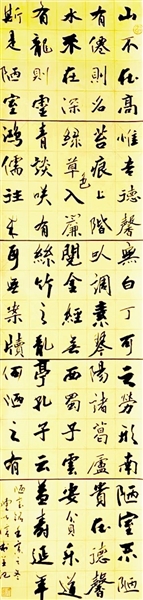 山不在高
有僊則名
水不在深
有龍則靈
斯是陋室
惟吾德馨
苔痕上階
綠草色入簾
青談咲有
鴻儒往来
無白丁可
以調素琴
閱金經無
絲竹之亂
耳無案牘
之勞形南
陽諸葛廬
西蜀子雲
亭孔子云
何陋之有
陋室
貴在德馨
安貧乐道
益壽延年